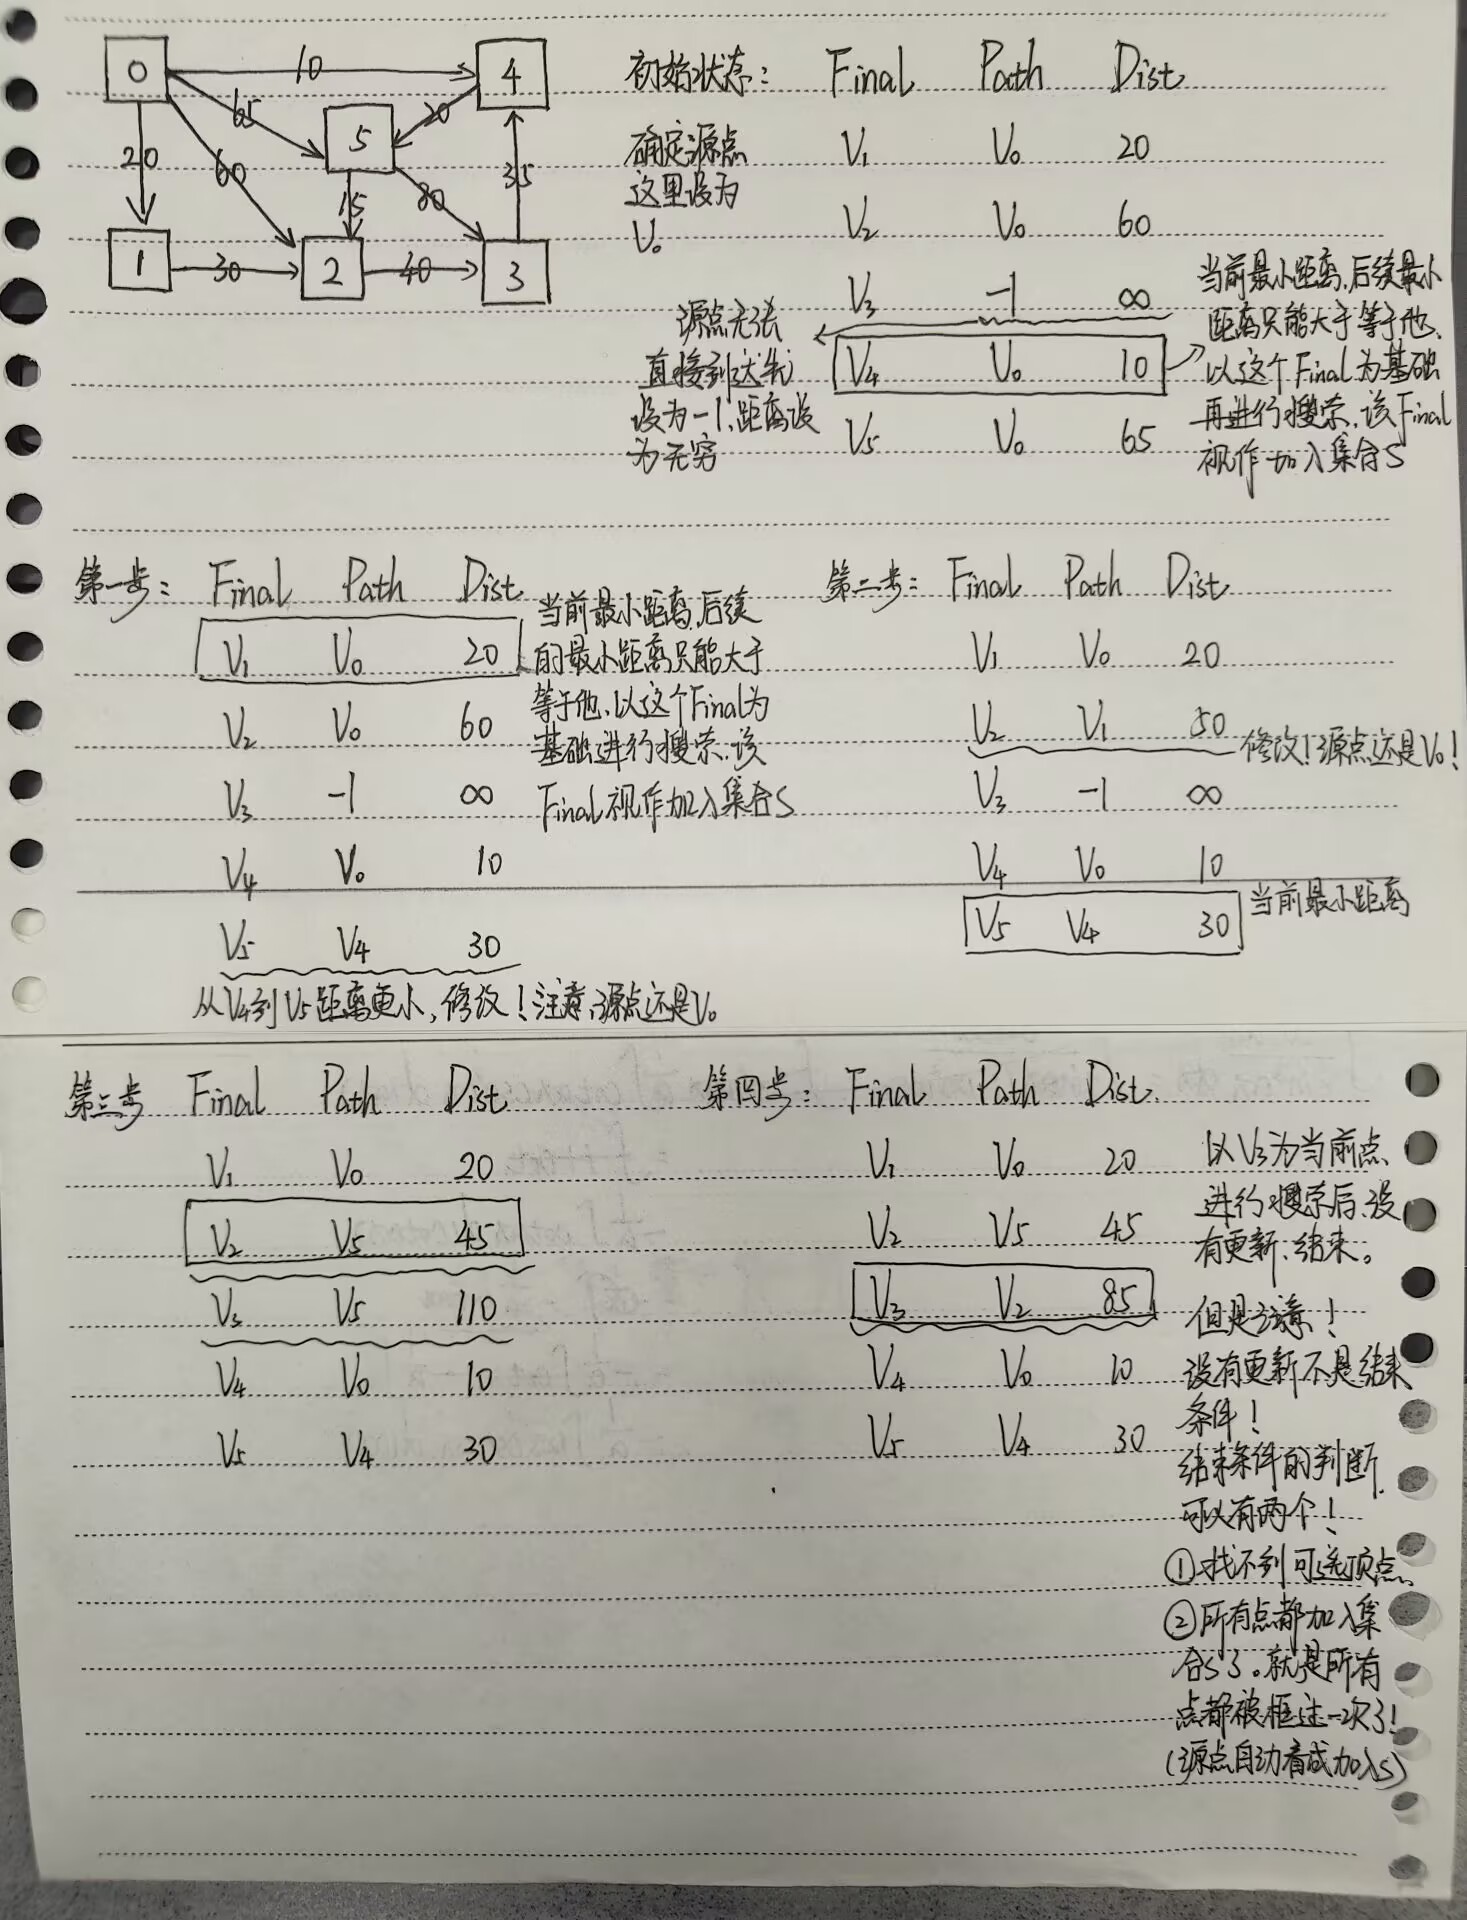 0
10
4
65
5
20
20
60
15
80
35
1
30
2
40
3
初始状态: Final Path Dist
确定源点
这里设为
V₀
V₁ V₀ 20
V₂ V₀ 60
V₃ -1 ∞
V₄ V₀ 10
V₅ V₀ 65
源点无法
直接到达先
设为-1,距离设
为无穷
当前最小距离,后续最小
距离只能大于等于他、
以这个Final为基础
再进行搜索,该Final
视作加入集合S
第一步: Final Path Dist
V₁ V₀ 20
V₂ V₀ 60
V₃ -1 ∞
V₄ V₀ 10
V₅ V₄ 30
当前最小距离,后续
的最小距离只能大于
等于他、以这个Final为
基础进行搜索,该
Final视作加入集合S
从V₄到V₅距离更小,修改!注意,源点还是V₀
第二步: Final Path Dist
V₁ V₀ 20
V₂ V₁ 50
修改!源点还是V₀!
V₃ -1 ∞
V₄ V₀ 10
V₅ V₄ 30
当前最小距离
第三步 Final Path Dist
V₁ V₀ 20
V₂ V₅ 45
V₃ V₅ 110
V₄ V₀ 10
V₅ V₄ 30
第四步: Final Path Dist
V₁ V₀ 20
V₂ V₅ 45
V₃ V₂ 85
V₄ V₀ 10
V₅ V₄ 30
以V₃为当前点、
进行搜索后,没
有更新、结束。
但是注意!
没有更新不是结束
条件!
结束条件的判断
可以有两个!
①找不到可选顶点、
②所有点都加入集
合S了。就是所有
点都被框过一次了!
(源点自动看成加入S)